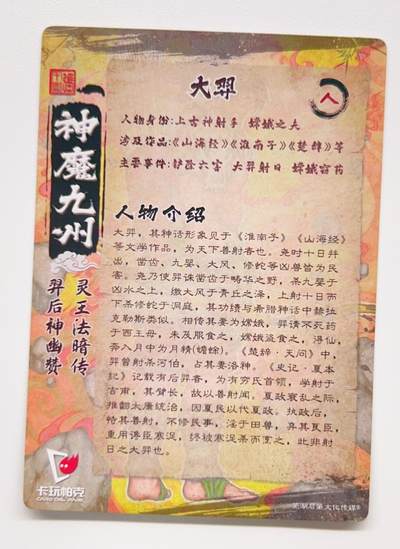 大羿
人
人物身份:上古神射手 嫦娥之夫
涉及作品:《山海经》《淮南子》《楚辞》等
主要事件:铲除六害 大羿射日 嫦娥窃药
神魔九州
灵王法暗传
羿后神幽赞
人物介绍
大羿，其神话形象见于《淮南子》《山海经》
等文学作品，为天下善射者也。尧时十日并
出，凿齿、九婴、大风、修蛇等凶兽皆为民
害。尧乃使羿诛凿齿于畴华之野，杀九婴于
凶水之上，缴大风于青丘之泽，上射十日而
下杀修蛇于洞庭，其功绩与希腊神话中赫拉
克勒斯类似。相传其妻为嫦娥，羿请不死药
于西王母，未及服食之，嫦娥盗食之，得仙，
奔入月中为月精(蟾蜍)。《楚辞·天问》中，
羿曾射杀河伯，占其妻洛神，《史记·夏本
纪》记载有后羿者，为有穷氏首领，学射于
吉甫，其臂长，故以善射闻，夏政衰乱之际，
推翻太康统治，因夏民以代夏政，执政后，
恃其善射，不修民事，淫于田兽，弃其贤臣，
重用谗臣寒浞，终被寒浞杀而烹之，此非射
日之大羿也。
卡玩帕克